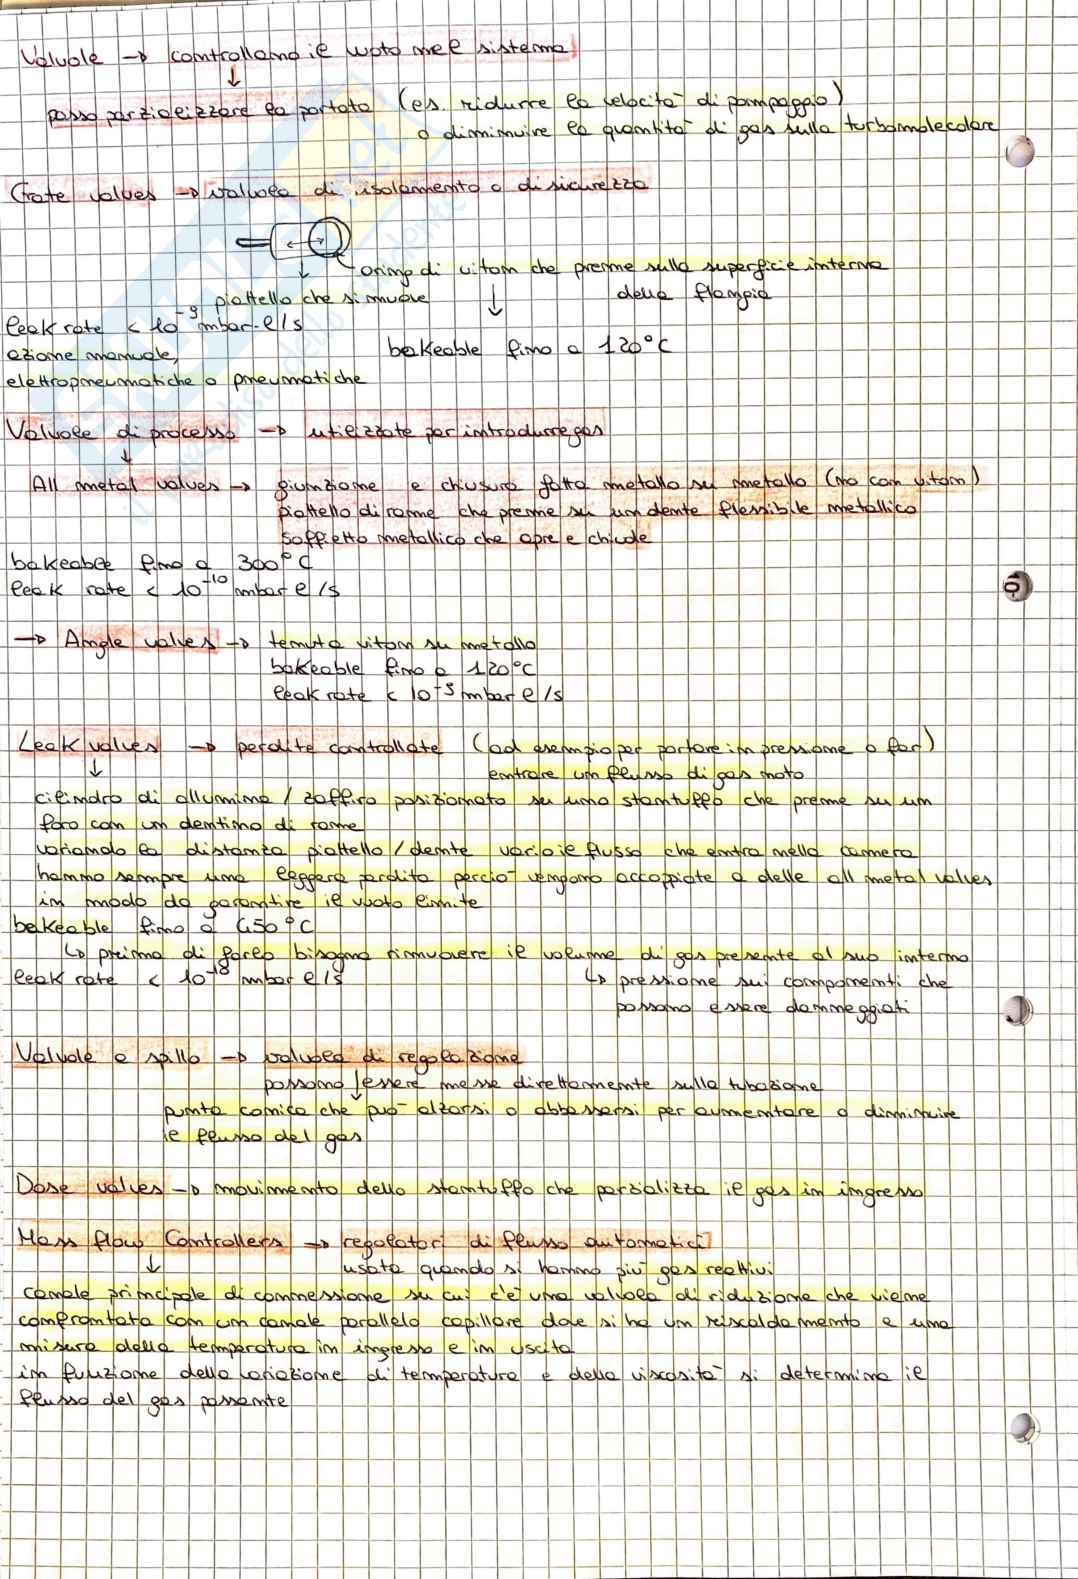 Valvole → controllano il vuoto nel sistema
↓
posso parzializzare la portata (es. ridurre la velocità di pompaggio)
o diminuire la quantità di gas sulla turbomolecolare
Gate valves → valvola di isolamento o di sicurezza
oring di viton che preme sulla superficie interna
della flangia
piattello che si muove
leak rate < 10⁻⁹ mbar·l/s
bakeable fino a 120°C
azione manuale,
elettropneumatiche o pneumatiche
Valvole di processo → utilizzate per introdurre gas
↓
All metal valves → giunzione e chiusura fatta metallo su metallo (no con viton)
piattello di rame che preme su un dente flessibile metallico
soffietto metallico che apre e chiude
bakeable fino a 300°C
leak rate < 10⁻¹⁰ mbar l/s
→ Angle valves → tenuta viton su metallo
bakeable fino a 120°C
leak rate < 10⁻⁹ mbar l/s
Leak valves → perdite controllate (ad esempio per portare in pressione o far)
entrare un flusso di gas noto
↓
cilindro di allumina / zaffiro posizionato su uno stantuffo che preme su un
foro con un dentino di rame
variando la distanza piattello / dente varia il flusso che entra nella camera
hanno sempre una leggera perdita perciò vengono accoppiate a delle all metal valves
in modo da garantire il vuoto limite
bakeable fino a 450°C
↳ prima di farlo bisogna rimuovere il volume di gas presente al suo interno
leak rate < 10⁻¹⁸ mbar l/s
↳ pressione sui componenti che
possono essere danneggiati
Valvole a spillo → valvola di regolazione
possono essere messe direttamente sulla tubazione
punta conica che può alzarsi o abbassarsi per aumentare o diminuire
il flusso del gas
Dose valves → movimento dello stantuffo che parzializza il gas in ingresso
Mass flow Controllers → regolatori di flusso automatici
↓
usato quando si hanno più gas reattivi
canale principale di connessione su cui c'è una valvola di riduzione che viene
confrontata con un canale parallelo capillare dove si ha un riscaldamento e una
misura della temperatura in ingresso e in uscita
in funzione della variazione di temperatura e della viscosità si determina il
flusso del gas passante